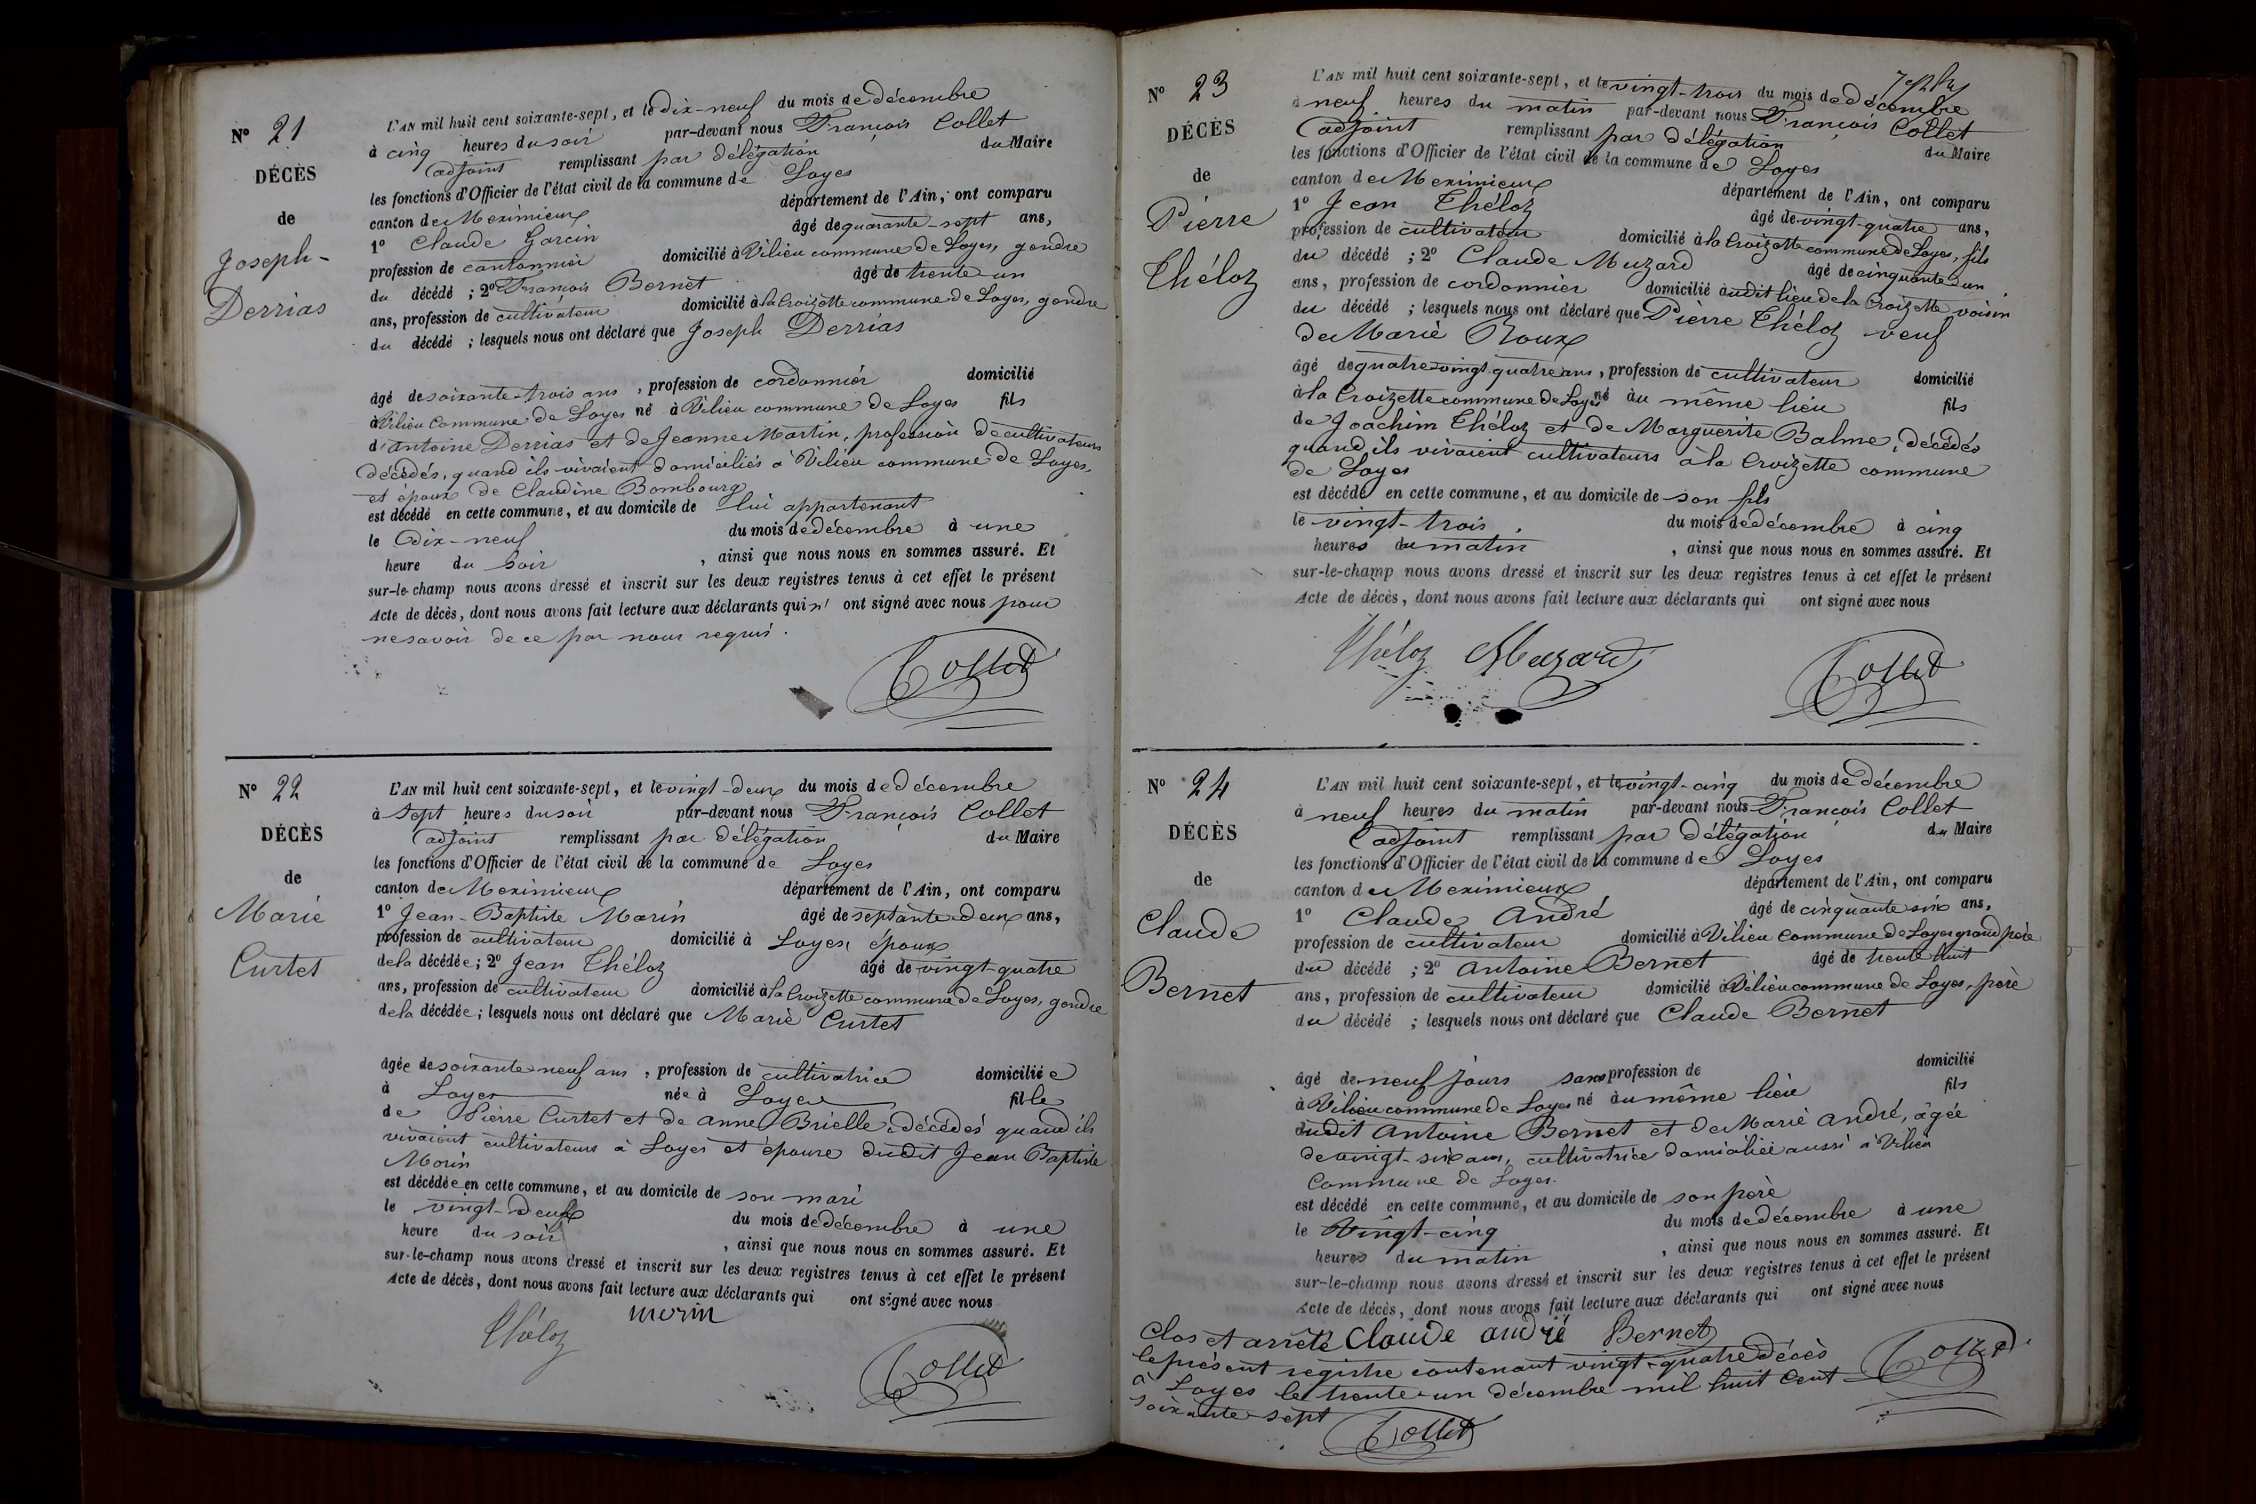 N° 21
DÉCÈS
de
Joseph-
Derrias
L'AN mil huit cent soixante-sept, et le dix-neuf du mois de décembre
à cinq heures du soir par-devant nous François Collet
adjoint remplissant par délégation du Maire
les fonctions d'Officier de l'état civil de la commune de Loyes
canton de Meximieux département de l'Ain, ont comparu
1° Claude Garcin âgé de quarante-sept ans,
profession de cantonnier domicilié à Vilieu commune de Loyes, gendre
du décédé ; 2° François Bernet âgé de trente un
ans, profession de cultivateur domicilié à la Croizette commune de Loyes, gendre
du décédé ; lesquels nous ont déclaré que Joseph Derrias
âgé de soixante-trois ans, profession de cordonnier domicilié
à Vilieu commune de Loyes né à Vilieu commune de Loyes fils
d'antoine Derrias et de Jeanne Martin, profession de cultivateurs
décédés, quand ils vivaient domiciliés à Vilieu commune de Loyes,
et époux de Claudine Bombourg
est décédé en cette commune, et au domicile de lui appartenant
le Dix-neuf du mois de décembre à une
heure du soir, ainsi que nous nous en sommes assuré. Et
sur-le-champ nous avons dressé et inscrit sur les deux registres tenus à cet effet le présent
Acte de décès, dont nous avons fait lecture aux déclarants qui n'ont signé avec nous pour
ne savoir de ce par nous requis.
Collet
N° 22
DÉCÈS
de
Marie
Curtet
L'AN mil huit cent soixante-sept, et le vingt-deux du mois de décembre
à sept heures du soir par-devant nous François Collet
adjoint remplissant par délégation du Maire
les fonctions d'Officier de l'état civil de la commune de Loyes
canton de Meximieux département de l'Ain, ont comparu
1° Jean-Baptiste Morin âgé de septante-deux ans,
profession de cultivateur domicilié à Loyes, époux
de la décédée ; 2° Jean Théloz âgé de vingt-quatre
ans, profession de cultivateur domicilié à la Croizette commune de Loyes, gendre
de la décédée ; lesquels nous ont déclaré que Marie Curtet
âgée de soixante-neuf ans, profession de cultivatrice domiciliée
à Loyes née à Loyes fille
de Pierre Curtet et de anne Brielle, décédés quand ils
vivaient cultivateurs à Loyes et épouse dudit Jean Baptiste
Morin
est décédée en cette commune, et au domicile de son mari
le vingt-deux du mois de décembre à une
heure du soir, ainsi que nous nous en sommes assuré. Et
sur-le-champ nous avons dressé et inscrit sur les deux registres tenus à cet effet le présent
Acte de décès, dont nous avons fait lecture aux déclarants qui ont signé avec nous
Théloz morin
Collet
N° 23
DÉCÈS
de
Pierre
Théloz
L'AN mil huit cent soixante-sept, et le vingt-trois du mois de décembre
à neuf heures du matin par-devant nous François Collet
adjoint remplissant par délégation du Maire
les fonctions d'Officier de l'état civil de la commune de Loyes
canton de Meximieux département de l'Ain, ont comparu
1° Jean Théloz âgé de vingt-quatre ans,
profession de cultivateur domicilié à la Croizette commune de Loyes, fils
du décédé ; 2° Claude Muzard âgé de cinquante-un
ans, profession de cordonnier domicilié audit lieu de la Croizette voisin
du décédé ; lesquels nous ont déclaré que Pierre Théloz veuf
de Marie Roux
âgé de quatre-vingt-quatre ans, profession de cultivateur domicilié
à la Croizette commune de Loyes né au même lieu fils
de Joachim Théloz et de Marguerite Balme, décédés
quand ils vivaient cultivateurs à la Croizette commune
de Loyes
est décédé en cette commune, et au domicile de son fils
le vingt-trois du mois de décembre à cinq
heures du matin, ainsi que nous nous en sommes assuré. Et
sur-le-champ nous avons dressé et inscrit sur les deux registres tenus à cet effet le présent
Acte de décès, dont nous avons fait lecture aux déclarants qui ont signé avec nous
Théloz Muzard
Collet
N° 24
DÉCÈS
de
Claude
Bernet
L'AN mil huit cent soixante-sept, et le vingt-cinq du mois de décembre
à neuf heures du matin par-devant nous François Collet
adjoint remplissant par délégation du Maire
les fonctions d'Officier de l'état civil de la commune de Loyes
canton de Meximieux département de l'Ain, ont comparu
1° Claude André âgé de cinquante six ans,
profession de cultivateur domicilié à Vilieu commune de Loyes grand père
du décédé ; 2° antoine Bernet âgé de trente huit
ans, profession de cultivateur domicilié à Vilieu commune de Loyes, père
du décédé ; lesquels nous ont déclaré que Claude Bernet
âgé de neuf jours sans profession de domicilié
à Vilieu commune de Loyes né au même lieu fils
dudit Antoine Bernet et de Marie André, âgée
de vingt-six ans, cultivatrice domiciliée aussi à Vilieu
Commune de Loyes.
est décédé en cette commune, et au domicile de son père
le Vingt-cinq du mois de décembre à une
heures du matin, ainsi que nous nous en sommes assuré. Et
sur-le-champ nous avons dressé et inscrit sur les deux registres tenus à cet effet le présent
Acte de décès, dont nous avons fait lecture aux déclarants qui ont signé avec nous
Claude andré Bernet
Collet
Clos et arrêté
le présent registre contenant vingt-quatre décès
à Loyes le trente-un décembre mil huit cent
soixante-sept
Collet